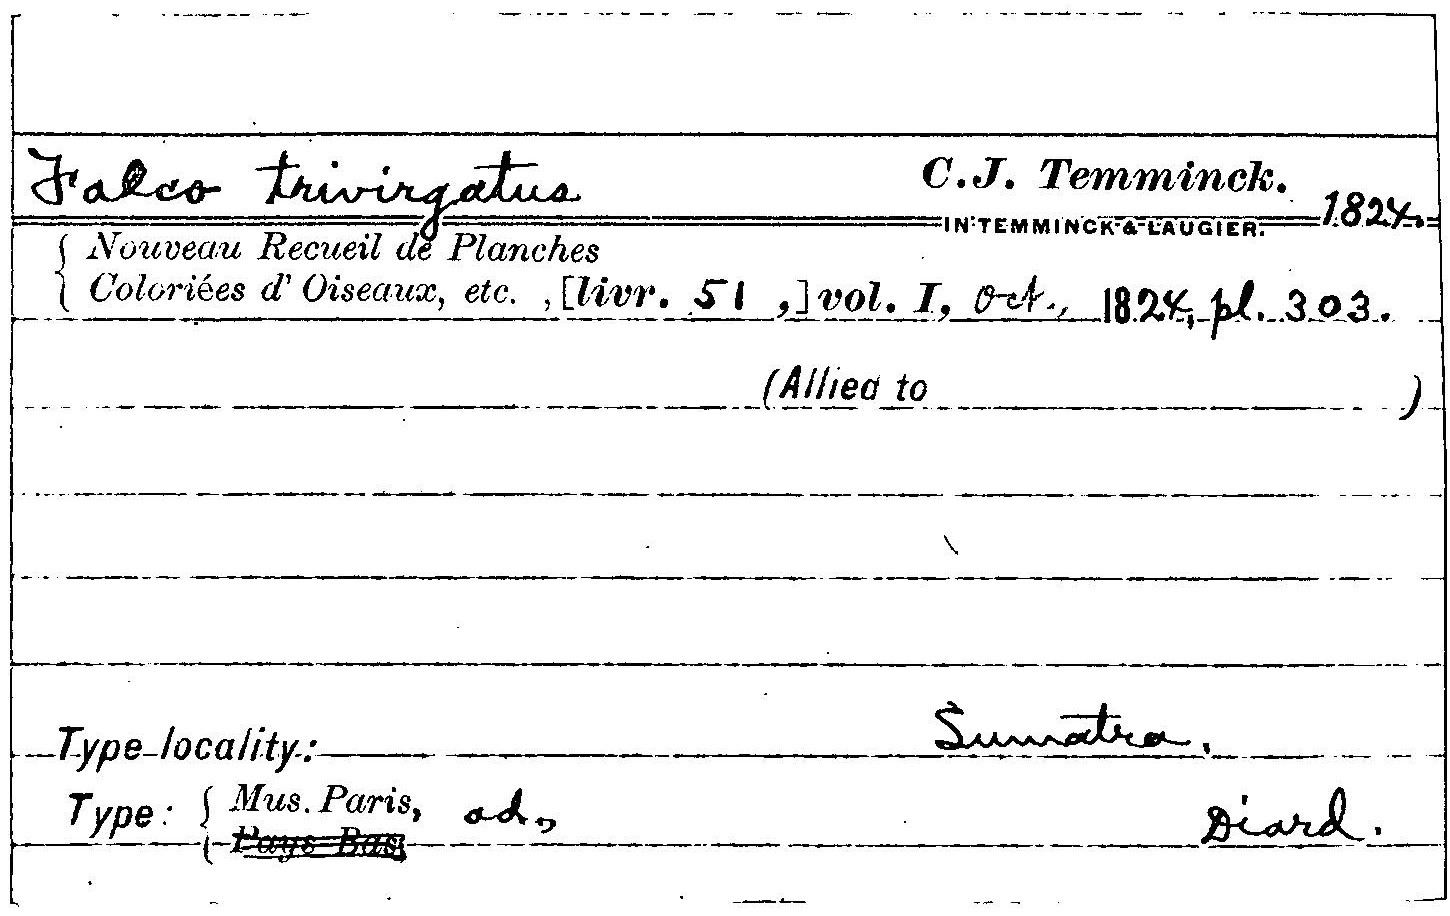 Falco trivirgatus C.J. Temminck. 1824.
IN TEMMINCK & LAUGIER.
{ Nouveau Recueil de Planches
Coloriées d' Oiseaux, etc. , [livr. 51 ,] vol. I, Oct., 1824, pl. 303.
(Allied to )
Type locality: Sumatra.
Type: { Mus. Paris, ad., Diard.
Pays Bas,